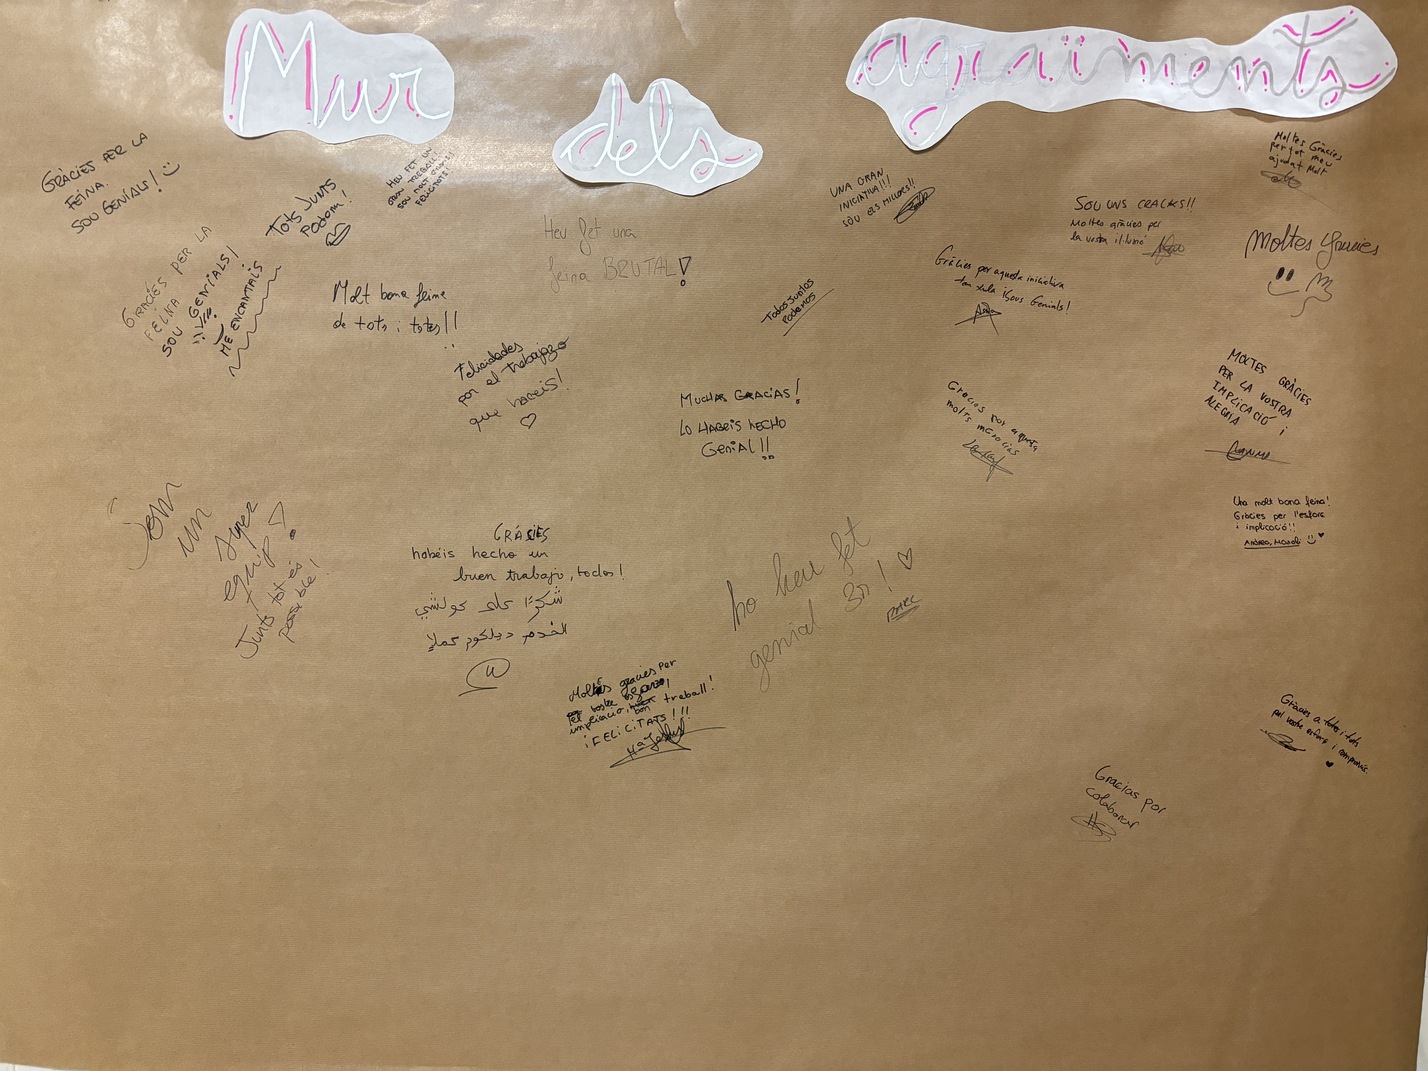 Mur
dels
agraïments
GRÀCIES PER LA
FEINA.
SOU GENIALS!
Tots Junts
Podem!
HEU FET UN
GRAN TREBALL!
SOU MOLT GRANS!
FELICITATS!
GRACIES PER LA
FEINA
SOU GENIALS!
ME ENCANTAIS
Molt bona feina
de tots i totes!!
Heu fet una
feina BRUTAL!
Felicidades
por el trabajazo
que haceis!
UNA GRAN
INICIATIVA!!!
SOU ELS MILLORS!!
Todos Juntos
Podemos
Gràcies per aquesta iniciativa
tan xula ¡Sous Genials!
SOU UNS CRACKS!!
Moltes gràcies per
la vostra il·lusió
Moltes Gràcies
per tot meu
ajudat Molt
Moltes gracies
MUCHAS GRACIAS!
LO HABEIS HECHO
GENIAL!!
Gracias por aquesta
molts
MOLTES GRÀCIES
PER LA VOSTRA
IMPLICACIÓ i
ALEGRIA
Una molt bona feina!
Gràcies per l'esforç
i implicació!!
Andrea, Manoli
Som
un
super
equip!
Junts tot és
possible!
GRÀCIES
habéis hecho un
buen trabajo, todos!
شكرًا على كولشي
الخدم ديلكوم كملا
ho heu fet
genial 3r!
MARC
Moltes gracies per
implicacio, bon treball!
¡FELICITATS!!!
Mª Jesús
Gràcies a totes i tots
pel vostre esforç i compromís.
Gracias por
colaborar